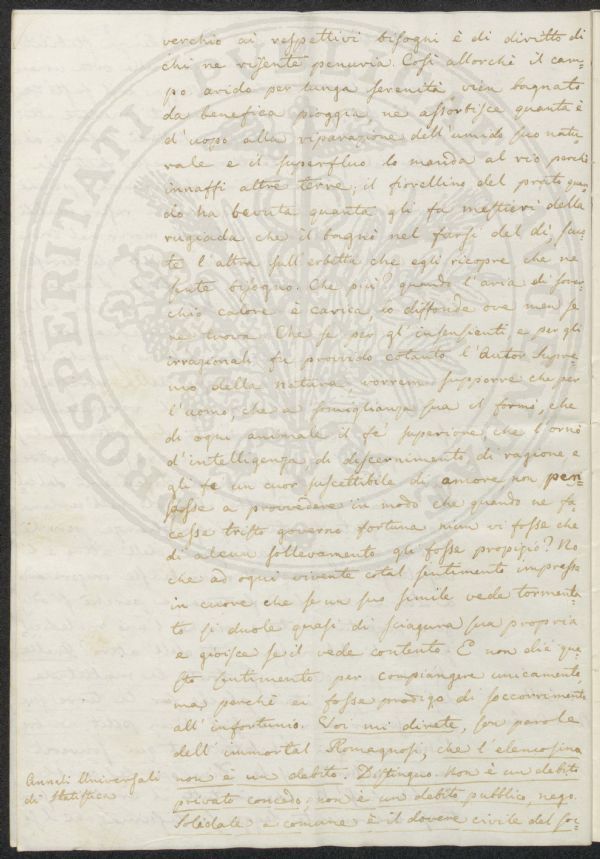 verchio ai respettivi bisogni è di diritto di
chi ne risente penuria. Così allorchè il cam-
po arido per lunga serenità vien bagnato
da benefica pioggia, ne assorbisce quanta è
d'uopo alla riparazione dell'umido suo natu-
rale e il superfluo lo manda al rio perchè
innaffi altre terre; il fiorellino del prato quan-
do ha bevuta quanta gli fa mestieri della
rugiada che il bagnò nel farsi del dì, scuo-
te l'altra sull'erbetta che egli ricopre che ne
sente bisogno. Che più? quando l'aria di sover-
chio calore è carica, lo diffonde ove men se
ne trova. Che se per gl'insensienti e per gli
irrazionali fu provvido cotanto l'Autor Supre-
mo della natura vorrem supporre che per
l'uomo, che a somiglianza sua il formò, che
di ogni animale il fé superiore che l'ornò
d'intelligenza, di discernimento di ragione e
gli fe un cuor suscettibile di amore non pen-
sasse a provvedere in modo che quando ne fa-
cesse tristo governo fortuna niun vi fosse che
di alcun sollevamento gli fosse propizio? No
che ad ogni vivente cotal sentimento impresse
in cuore che se un suo simile vede tormenta-
to si duole quasi di sciagura sua propria
e gioisce se il vede contento. E non die que-
sto sentimento per compiangere unicamente,
ma perchè ei fosse prodigo di soccorrimento
all'infortunio. Voi mi direte, son parole
dell'immortal Romagnosi, che l'elemosina
Annali Universali
di Statistica
non è un debito. Distinguo. Non è un debito
privato concedo; non è un debito pubblico, nego.
Soledale e comune è il dovere civile del soc-
PROSPERITATI PUBLICAE